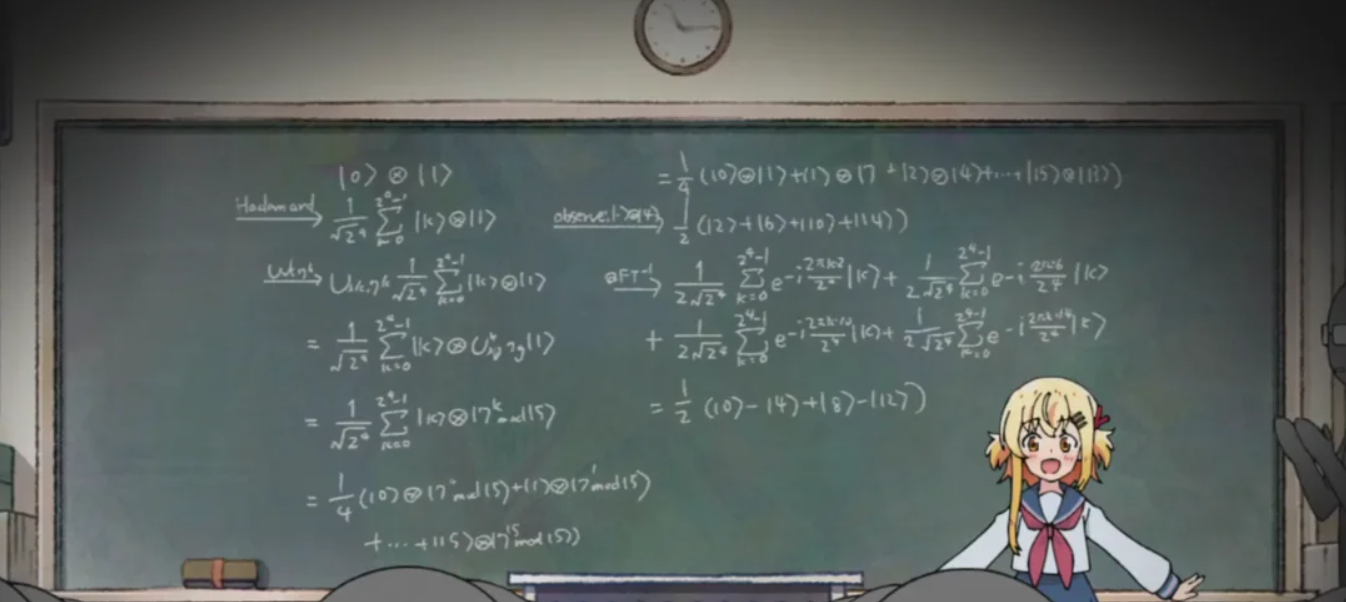 |0⟩ ⊗ |1⟩
Hadamard → 1/√2⁴ Σ_{k=0}^{2⁴-1} |k⟩⊗|1⟩
U_{k,7^k} 1/√2⁴ Σ_{k=0}^{2⁴-1} |k⟩⊗|1⟩
= 1/√2⁴ Σ_{k=0}^{2⁴-1} |k⟩⊗U^k |1⟩
= 1/√2⁴ Σ_{k=0}^{2⁴-1} |k⟩⊗|7^k mod 15⟩
= 1/4 (|0⟩⊗|7⁰ mod 15⟩+|1⟩⊗|7¹ mod 15⟩
+…+|15⟩⊗|7¹⁵ mod 15⟩)
= 1/4 (|0⟩⊗|1⟩+|1⟩⊗|7 +|2⟩⊗|4⟩+…+|15⟩⊗|13⟩)
observe |·⟩⊗|4⟩ → 1/2 (|2⟩+|6⟩+|10⟩+|14⟩)
QFT⁻¹ → 1/2√2⁴ Σ_{k=0}^{2⁴-1} e^{-i 2πk·2/2⁴} |k⟩ + 1/2√2⁴ Σ_{k=0}^{2⁴-1} e^{-i 2πk·6/2⁴} |k⟩
+ 1/2√2⁴ Σ_{k=0}^{2⁴-1} e^{-i 2πk·10/2⁴} |k⟩ + 1/2√2⁴ Σ_{k=0}^{2⁴-1} e^{-i 2πk·14/2⁴} |k⟩
= 1/2 (|0⟩-|4⟩+|8⟩-|12⟩)